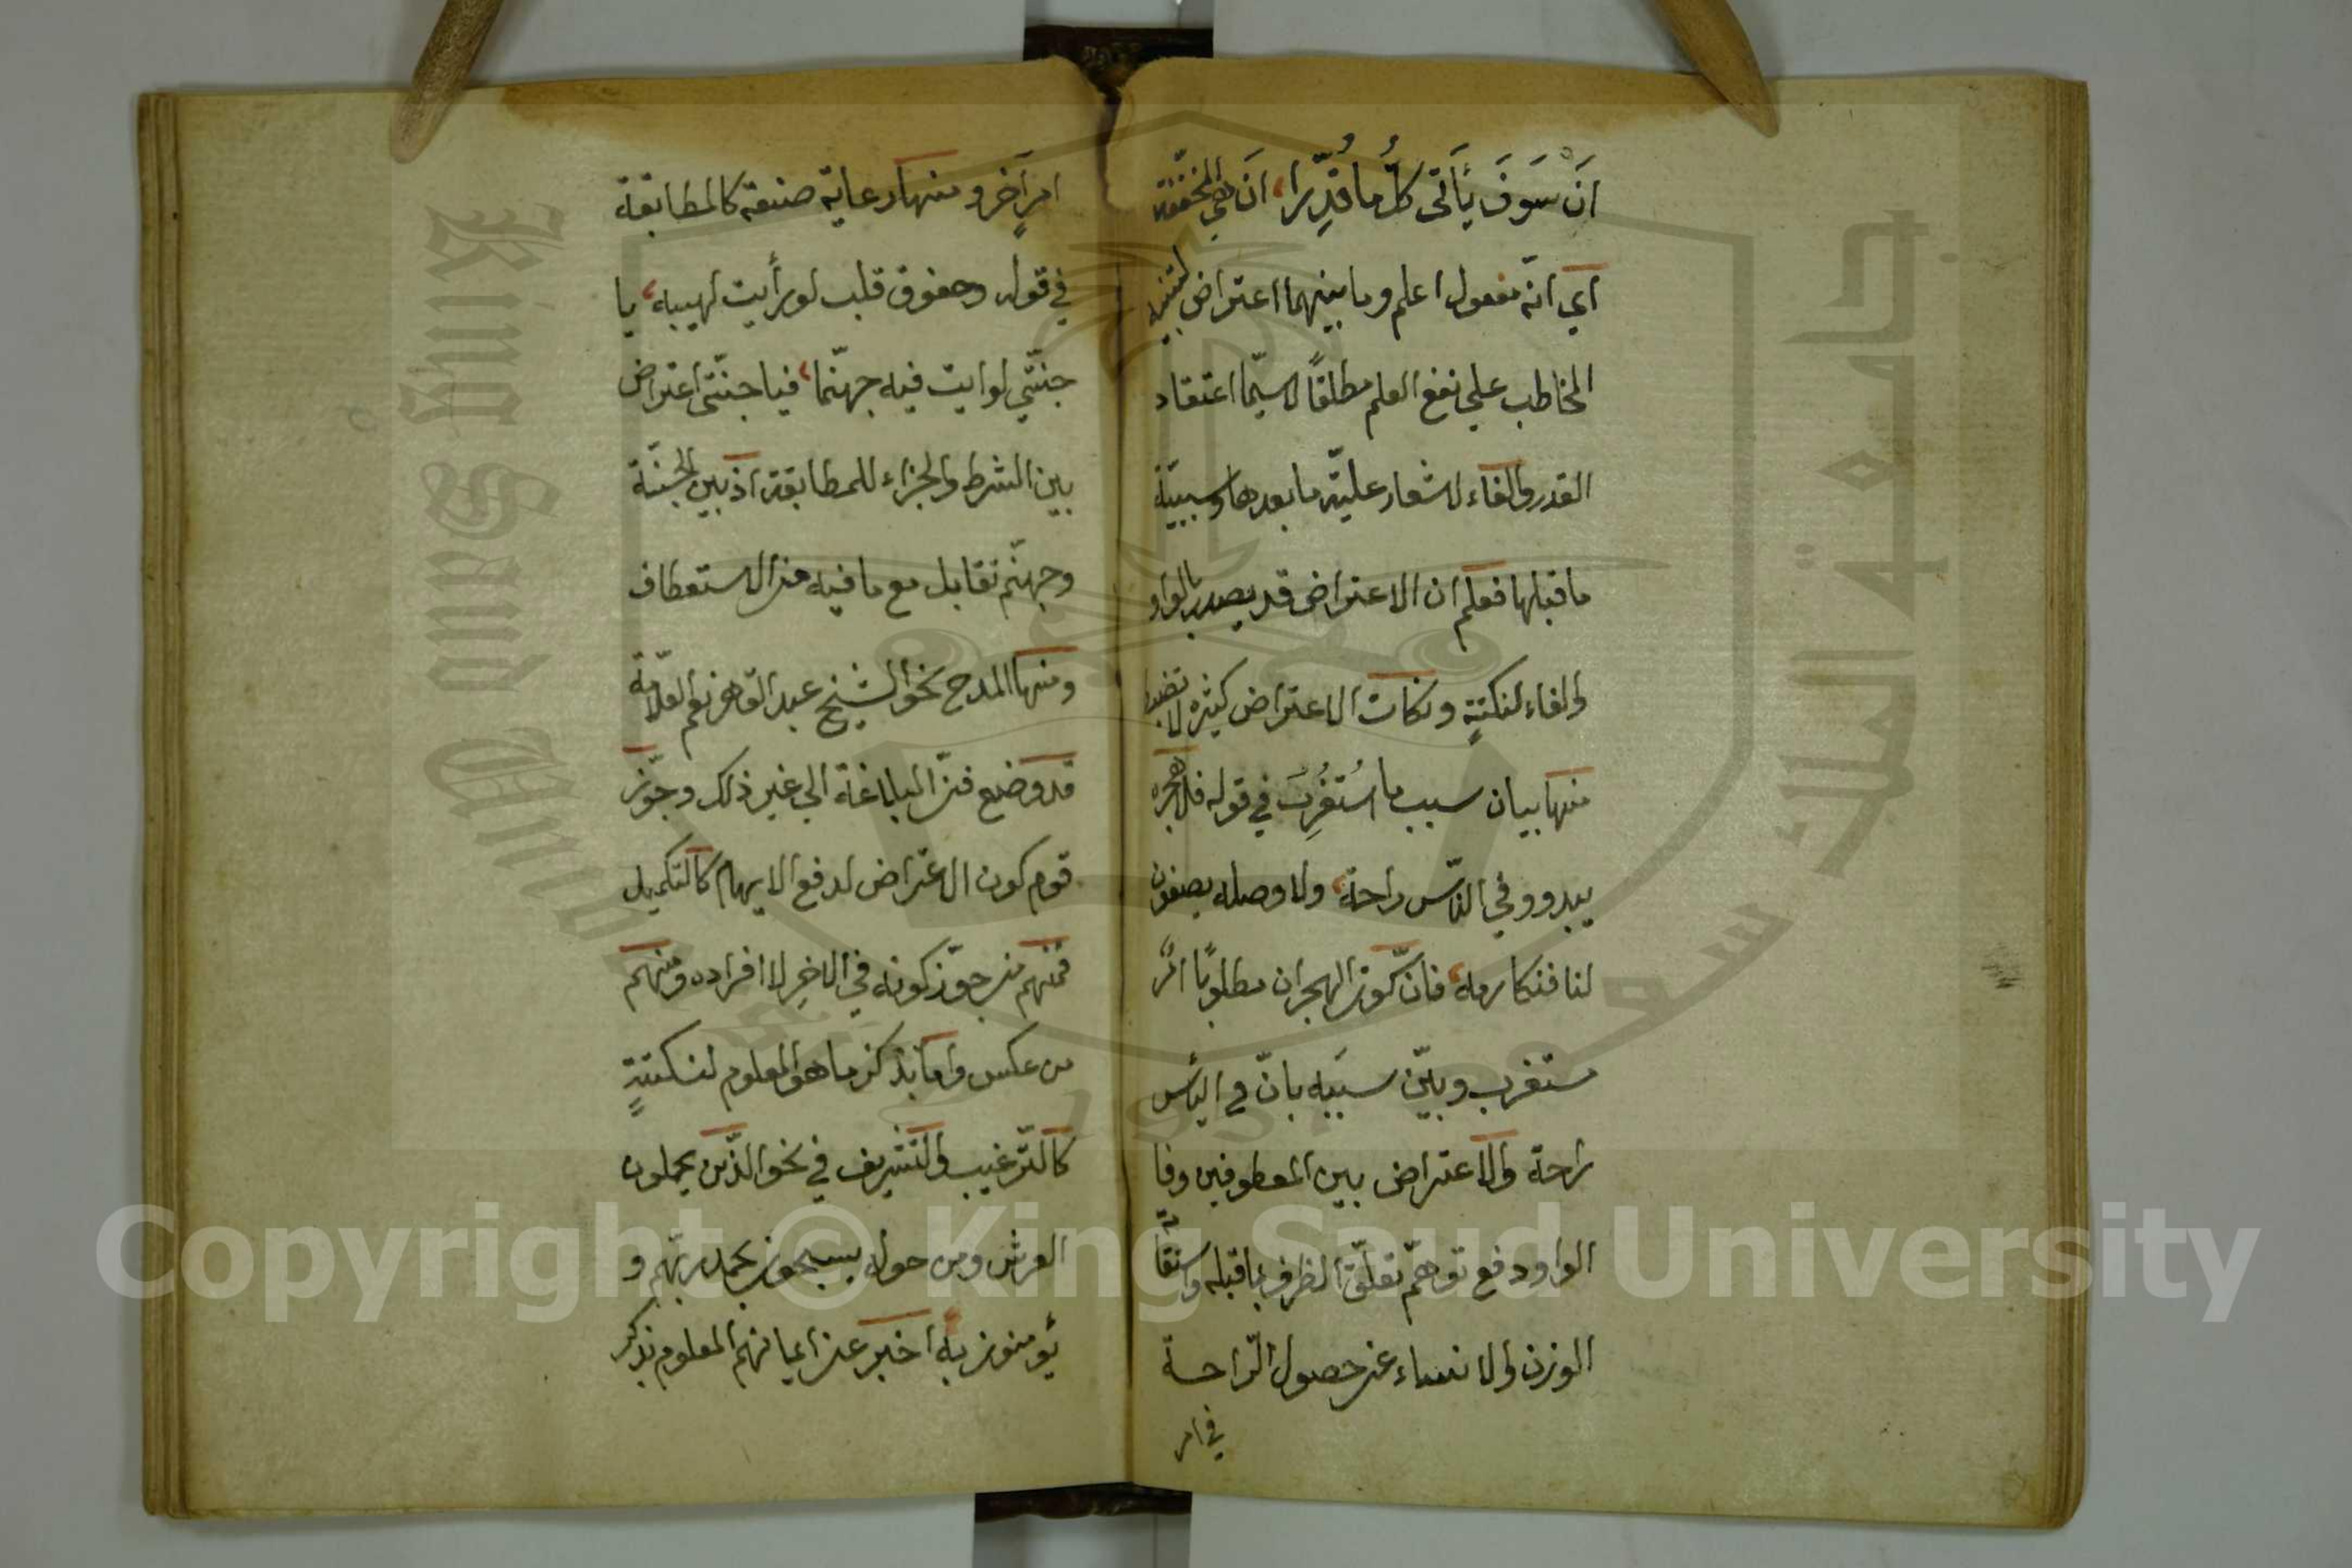 اَنْ سَوفَ يَأتى كلُّ ما قُدِّرا، اَن هي المخفّفة
اي انّه مفعول اعلم وما بينهما اعتراض لتنبيه
المخاطب على نفع العلم مطلقاً لاسيّما اعتقاد
القدر والفاء لاشعار عليّة ما بعدها وسببيّة
ما قبلها فعلم ان الاعتراض قد يصدر بالواو
والفاء لنكتةٍ ونكات الاعتراض كثيره لا تضبط
منها بيان سبب ما استُغْرِبَ في قوله فلا هجره
يبدو وفي اليأس راحة، ولا وصله يصفو
لنا فنكارمه، فانّ كون الهجران مطلوبًا امرٌ
مستغرب وبيّن سببَه بانّ في اليأس
راحة والاعتراض بين المعطوفين وفا
الواو دفع توهّم تعلّق الظرف بما قبله واستقامة
الوزن والانباء عن حصول الرّاحة
في امر
امرٍ آخر ومنها رعاية صنعة كالمطابقة
في قوله وخفوق قلب لو رأيت لهيبه، يا
جنّتي لرأيت فيه جهنّما، فيا جنّتي اعتراض
بين الشرط والجزاء للمطابقة اذ بين الجنّة
وجهنّم تقابل مع ما فيه من الاستعطاف
ومنها المدح نحو الشيخ عبد القاهر نعم العلّامة
قد وضع فنّ البلاغة الى غير ذلك وجوّز
قوم كون الاعتراض لدفع الايهام كالتكميل
فمنهم من جوّز كونه في الاخِر لا افراده ومنهم
من عكس وامّا بذكر ما هو المعلوم لنكتةٍ
كالتّرغيب والتشريف في نحو الذّين يحملون
العرش ومن حوله يسبحون بحمد ربّهم و
يؤمنون به، اخبر عن ايمانهم المعلوم بذكر
Copyright © King Saud University
King Saud University
جامعة الملك سعود
1957